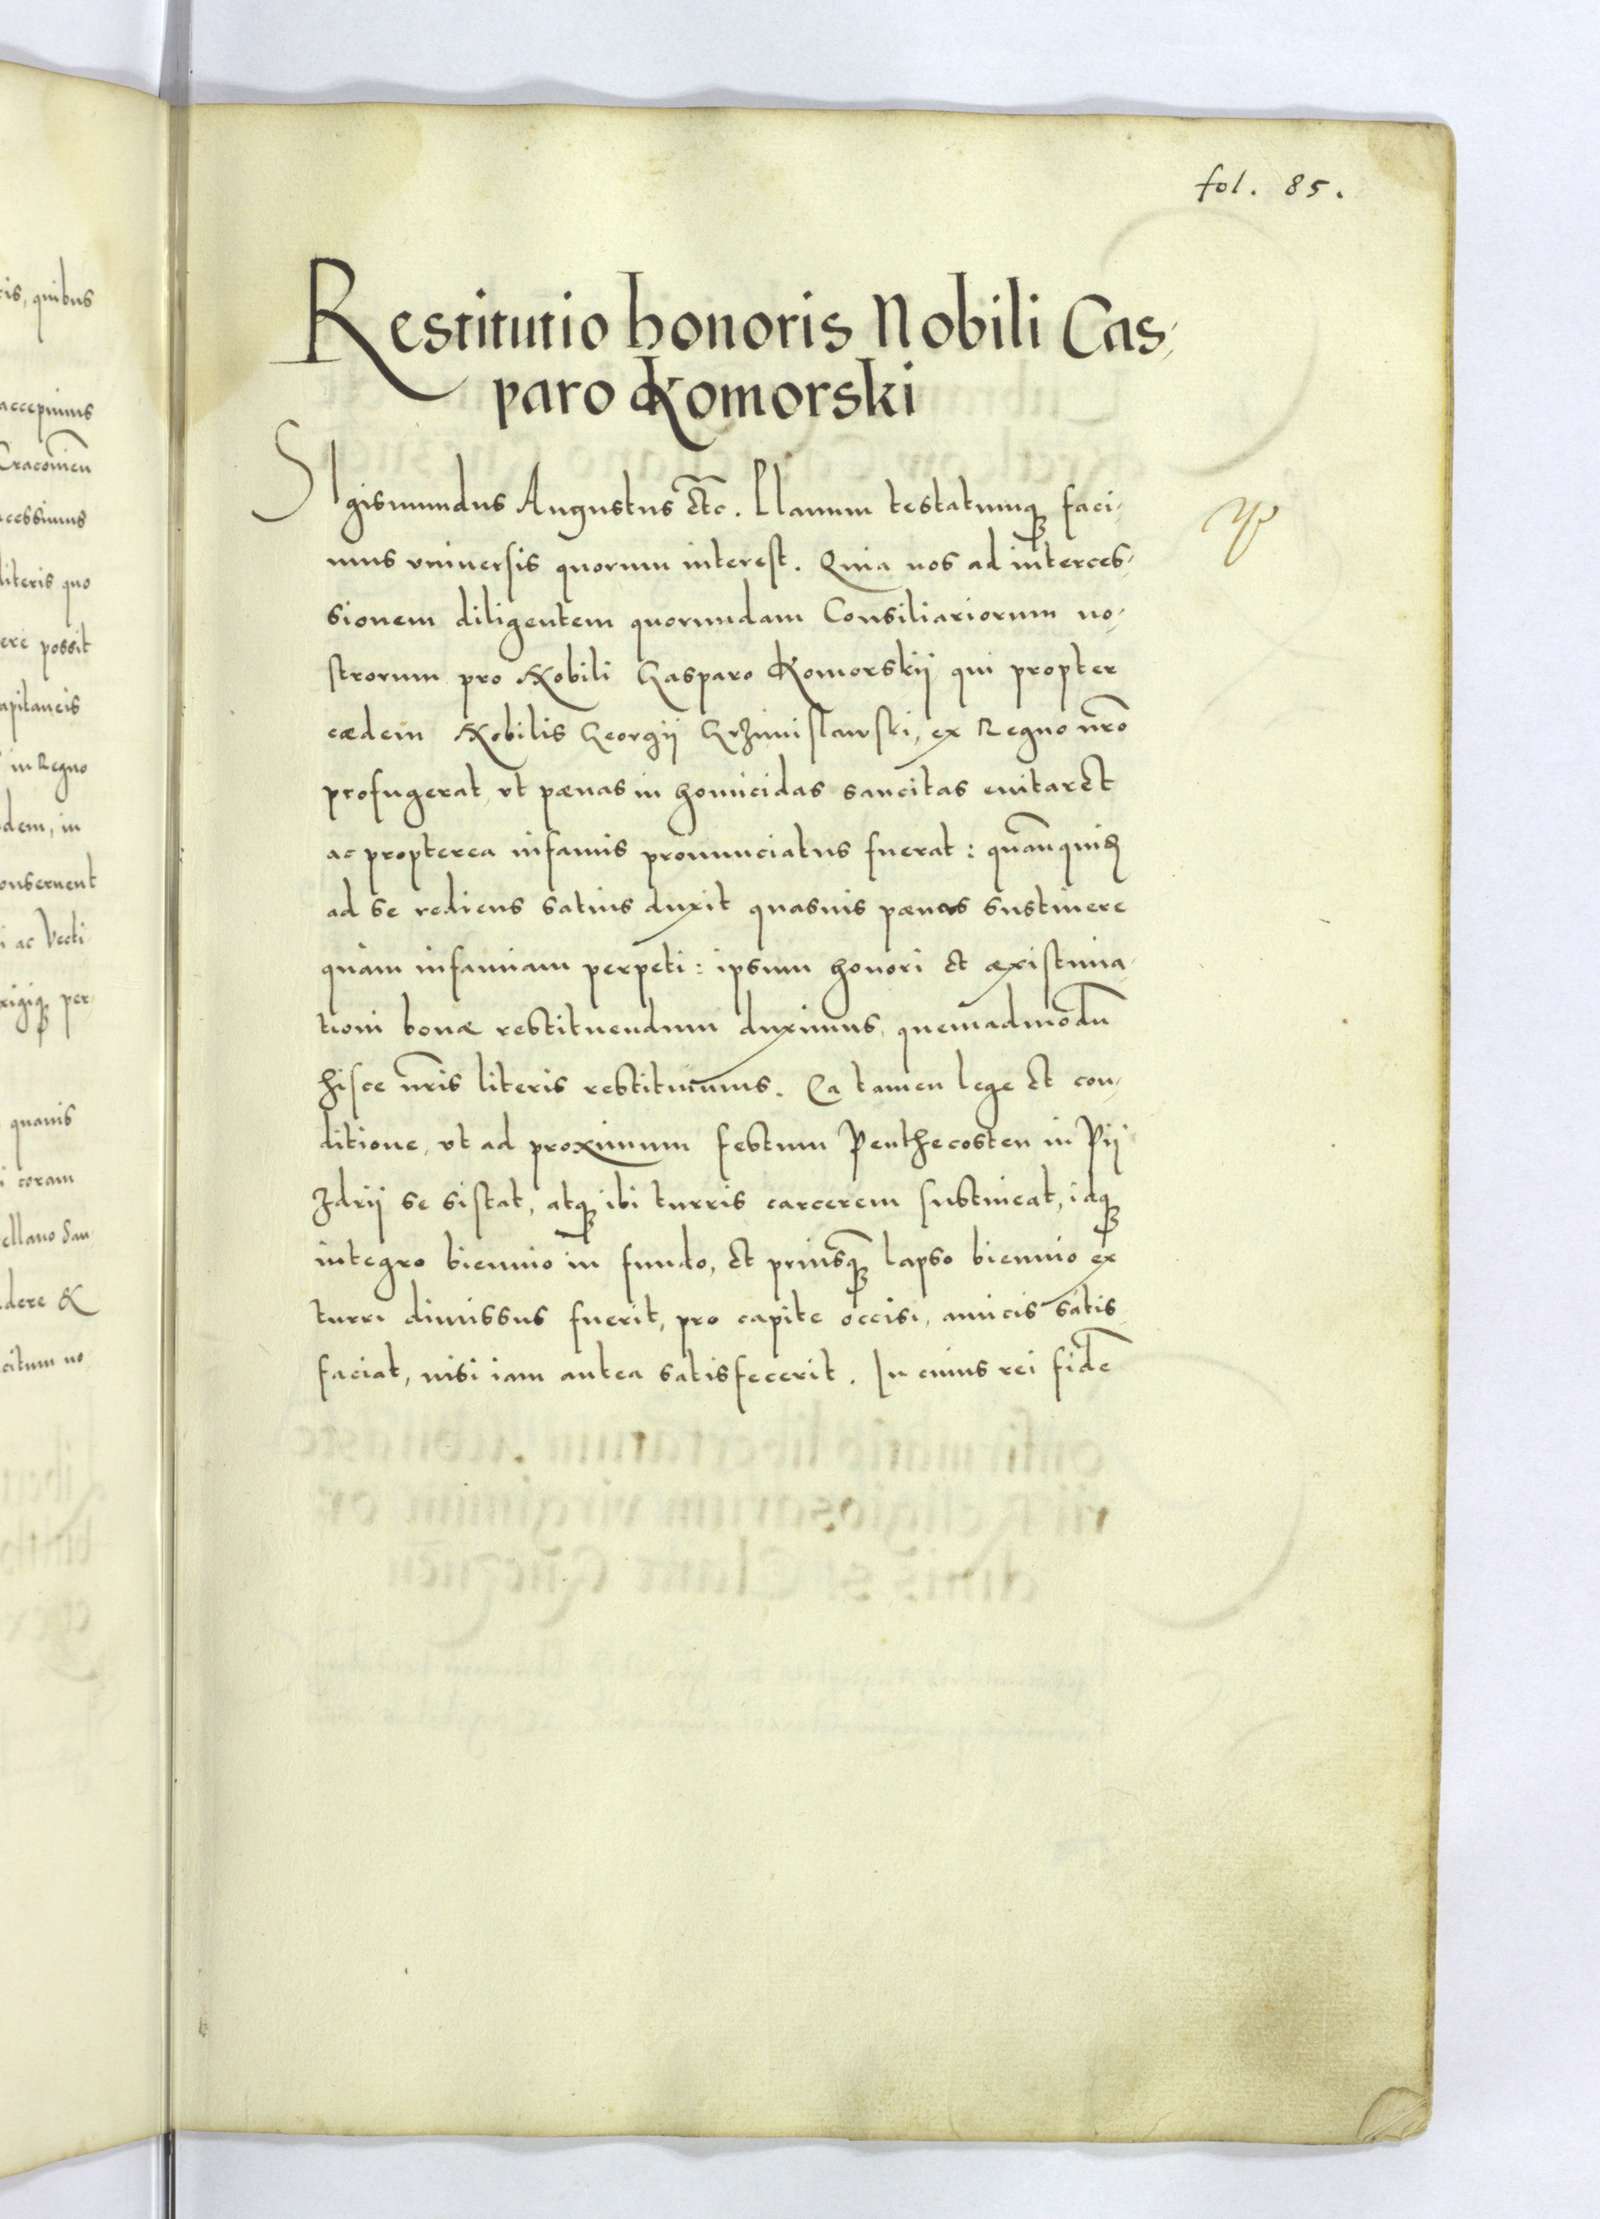 fol. 85.
Restitutio honoris Nobili Cas,
paro Komorski
SIgismundus Augustus etc. Planum testatumq faci,
mus vniuersis quorum interest. Quia nos ad interces,
sionem diligentem quorundam Consiliariorum no,
strorum pro Nobili Gasparo Komorskij qui propter
cædem Nobilis Georgij Grzimislawski, ex Regno nro
profugerat, vt pænas in homicidas sancitas euitaret
ac propterea infamis pronunciatus fuerat: quanquis
ad se rediens satius duxit quasuis pænas sustinere
quàm infamiam perpeti: ipsum honori et existima,
tioni bonæ restituendum duximus, quemadmodu
hisce nris literis restituimus. Ea tamen lege et con,
ditione, vt ad proximum festum Penthecosten in Pij
Zdrij se sistat, atq ibi turris carcerem sustineat, idq
integro biennio in fundo, et priusq lapso biennio ex
turri dimissus fuerit, pro capite occisi, amicis satis
faciat, nisi iam antea satisfecerit. In cuius rei fide
is, quibus
accepimus
Cracouien
cessimus
literis quo
ere possit
apitaneis
in Regno
dem, in
onseruent
i ac Vecti
exigiq per
quauis
i coram
ellano San
dere &
citum no